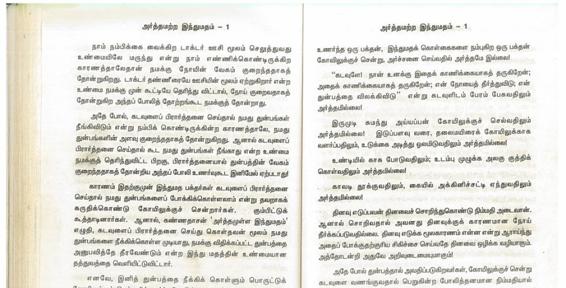 அர்த்தமற்ற இந்துமதம் - 1
நாம் நம்பிக்கை வைக்கிற டாக்டர் ஊசி மூலம் செலுத்துவது
உண்மையிலே மருந்து என்று நாம் எண்ணிக்கொண்டிருக்கிற
காரணத்தாலேதான் நமக்கு நோயின் வேகம் குறைந்ததாகத்
தோன்றுகிறது. டாக்டர் தண்ணீரையே ஊசியின் மூலம் ஏற்றுகிறார் என்ற
உண்மை நமக்கு முன் கூட்டியே தெரிந்து விட்டால், நோய் குறைவதாகத்
தோன்றுகிற அந்தப் போலித் தோற்றங்கூட நமக்குத் தோன்றாது.
அதே போல், கடவுளைப் பிரார்த்தனை செய்தால் நமது துன்பங்கள்
நீங்கிவிடும் என்று நம்பிக் கொண்டிருக்கின்ற காரணத்தாலே, நமது
துன்பங்களின் அளவு குறைந்ததாகத் தோன்றுகிறது. ஆனால் கடவுளைப்
பிரார்த்தனை செய்தால் கூட நமது துன்பங்கள் நீங்காது என்ற உண்மை
நமக்குத் தெரிந்துவிட்ட பிறகு, பிரார்த்தனையால் துன்பத்தின் வேகம்
குறைந்ததாகத் தோன்றிய அந்தப் போலி உணர்வுகூட இனிமேல் ஏற்படாது!
காரணம் இதற்குமுன் இந்துமத பக்தர்கள் கடவுளைப் பிரார்த்தனை
செய்தால் நமது துன்பங்களைப் போக்கிக்கொள்ளலாம் என்று தவறாகக்
கருதிக்கொண்டு கோயிலுக்குச் சென்றார்கள். கும்பிட்டுக்
கூத்தாடினார்கள். ஆனால், கண்ணதாசன் "அர்த்தமுள்ள இந்துமதம்"
எழுதி, கடவுளைப் பிரார்த்தனை செய்து கொள்வதன் மூலம் நமது
துன்பங்களை நீக்கிக்கொள்ள முடியாது, நமக்கு விதிக்கப்பட்ட துன்பத்தை
அனுபவித்தே தீரவேண்டும் என்ற இந்து மதத்தின் உண்மையான
தத்துவத்தை வெளியிட்டுவிட்டார்.
எனவே, இனித் துன்பத்தை நீக்கிக் கொள்ளும் பொருட்டுக்
அர்த்தமற்ற இந்துமதம் - 1
உணர்ந்த ஒரு பக்தன், இந்துமதக் கொள்கைகளை நம்புகிற ஒரு பக்தன்
கோயிலுக்குச் சென்று, அர்ச்சனை செய்வதில் அர்த்தமே இல்லை!
"கடவுளே! நான் உனக்கு இதைக் காணிக்கையாகத் தருகிறேன்;
அதைக் காணிக்கையாகத் தருகிறேன்; என் நோயைத் தீர்த்துவிடு; என்
துன்பத்தை விலக்கிவிடு" என்று கடவுளிடம் பேரம் பேசுவதிலும்
அர்த்தமில்லை!
இருமுடி சுமந்து அய்யப்பன் கோயிலுக்குச் செல்வதிலும்
அர்த்தமில்லை! இடுப்பளவு வரை, தலைமயிரைக் கோயிலுக்காக
வளர்ப்பதிலும், உடுக்கை அடித்து ஓலமிடுவதிலும் அர்த்தமில்லை!
உண்டியில் காசு போடுவதிலும்; உடம்பு முழுக்க அலகு குத்திக்
கொள்வதிலும் அர்த்தமில்லை!
காவடி தூக்குவதிலும், கையில் அக்கினிச்சட்டி ஏந்துவதிலும்
அர்த்தமில்லை!
தினவு எடுப்பவன் தினவைச் சொறிந்துகொண்டு நிம்மதி அடைவான்.
ஆனால் சொறிவதால் அவனது தினவுக்குக் காரணமான நோய்
தீர்க்கப்படுவதில்லை. தினவு எடுக்க மூலகாரணம் என்ன என்று ஆராய்ந்து
அதைப் போக்குதற்குரிய சிகிச்சை செய்வதே தினவை ஒழிக்க வழியாகும்.
அத்தோடன்றி அதுவே அறிவுடைமையுமாகும்!
அதே போல் துன்பத்தால் அவதிப்படுகிறவர்கள், கோயிலுக்குச் சென்று
கடவுளை வணங்குவதால் பெறுகின்ற போலித்தனமான நிம்மதியால்